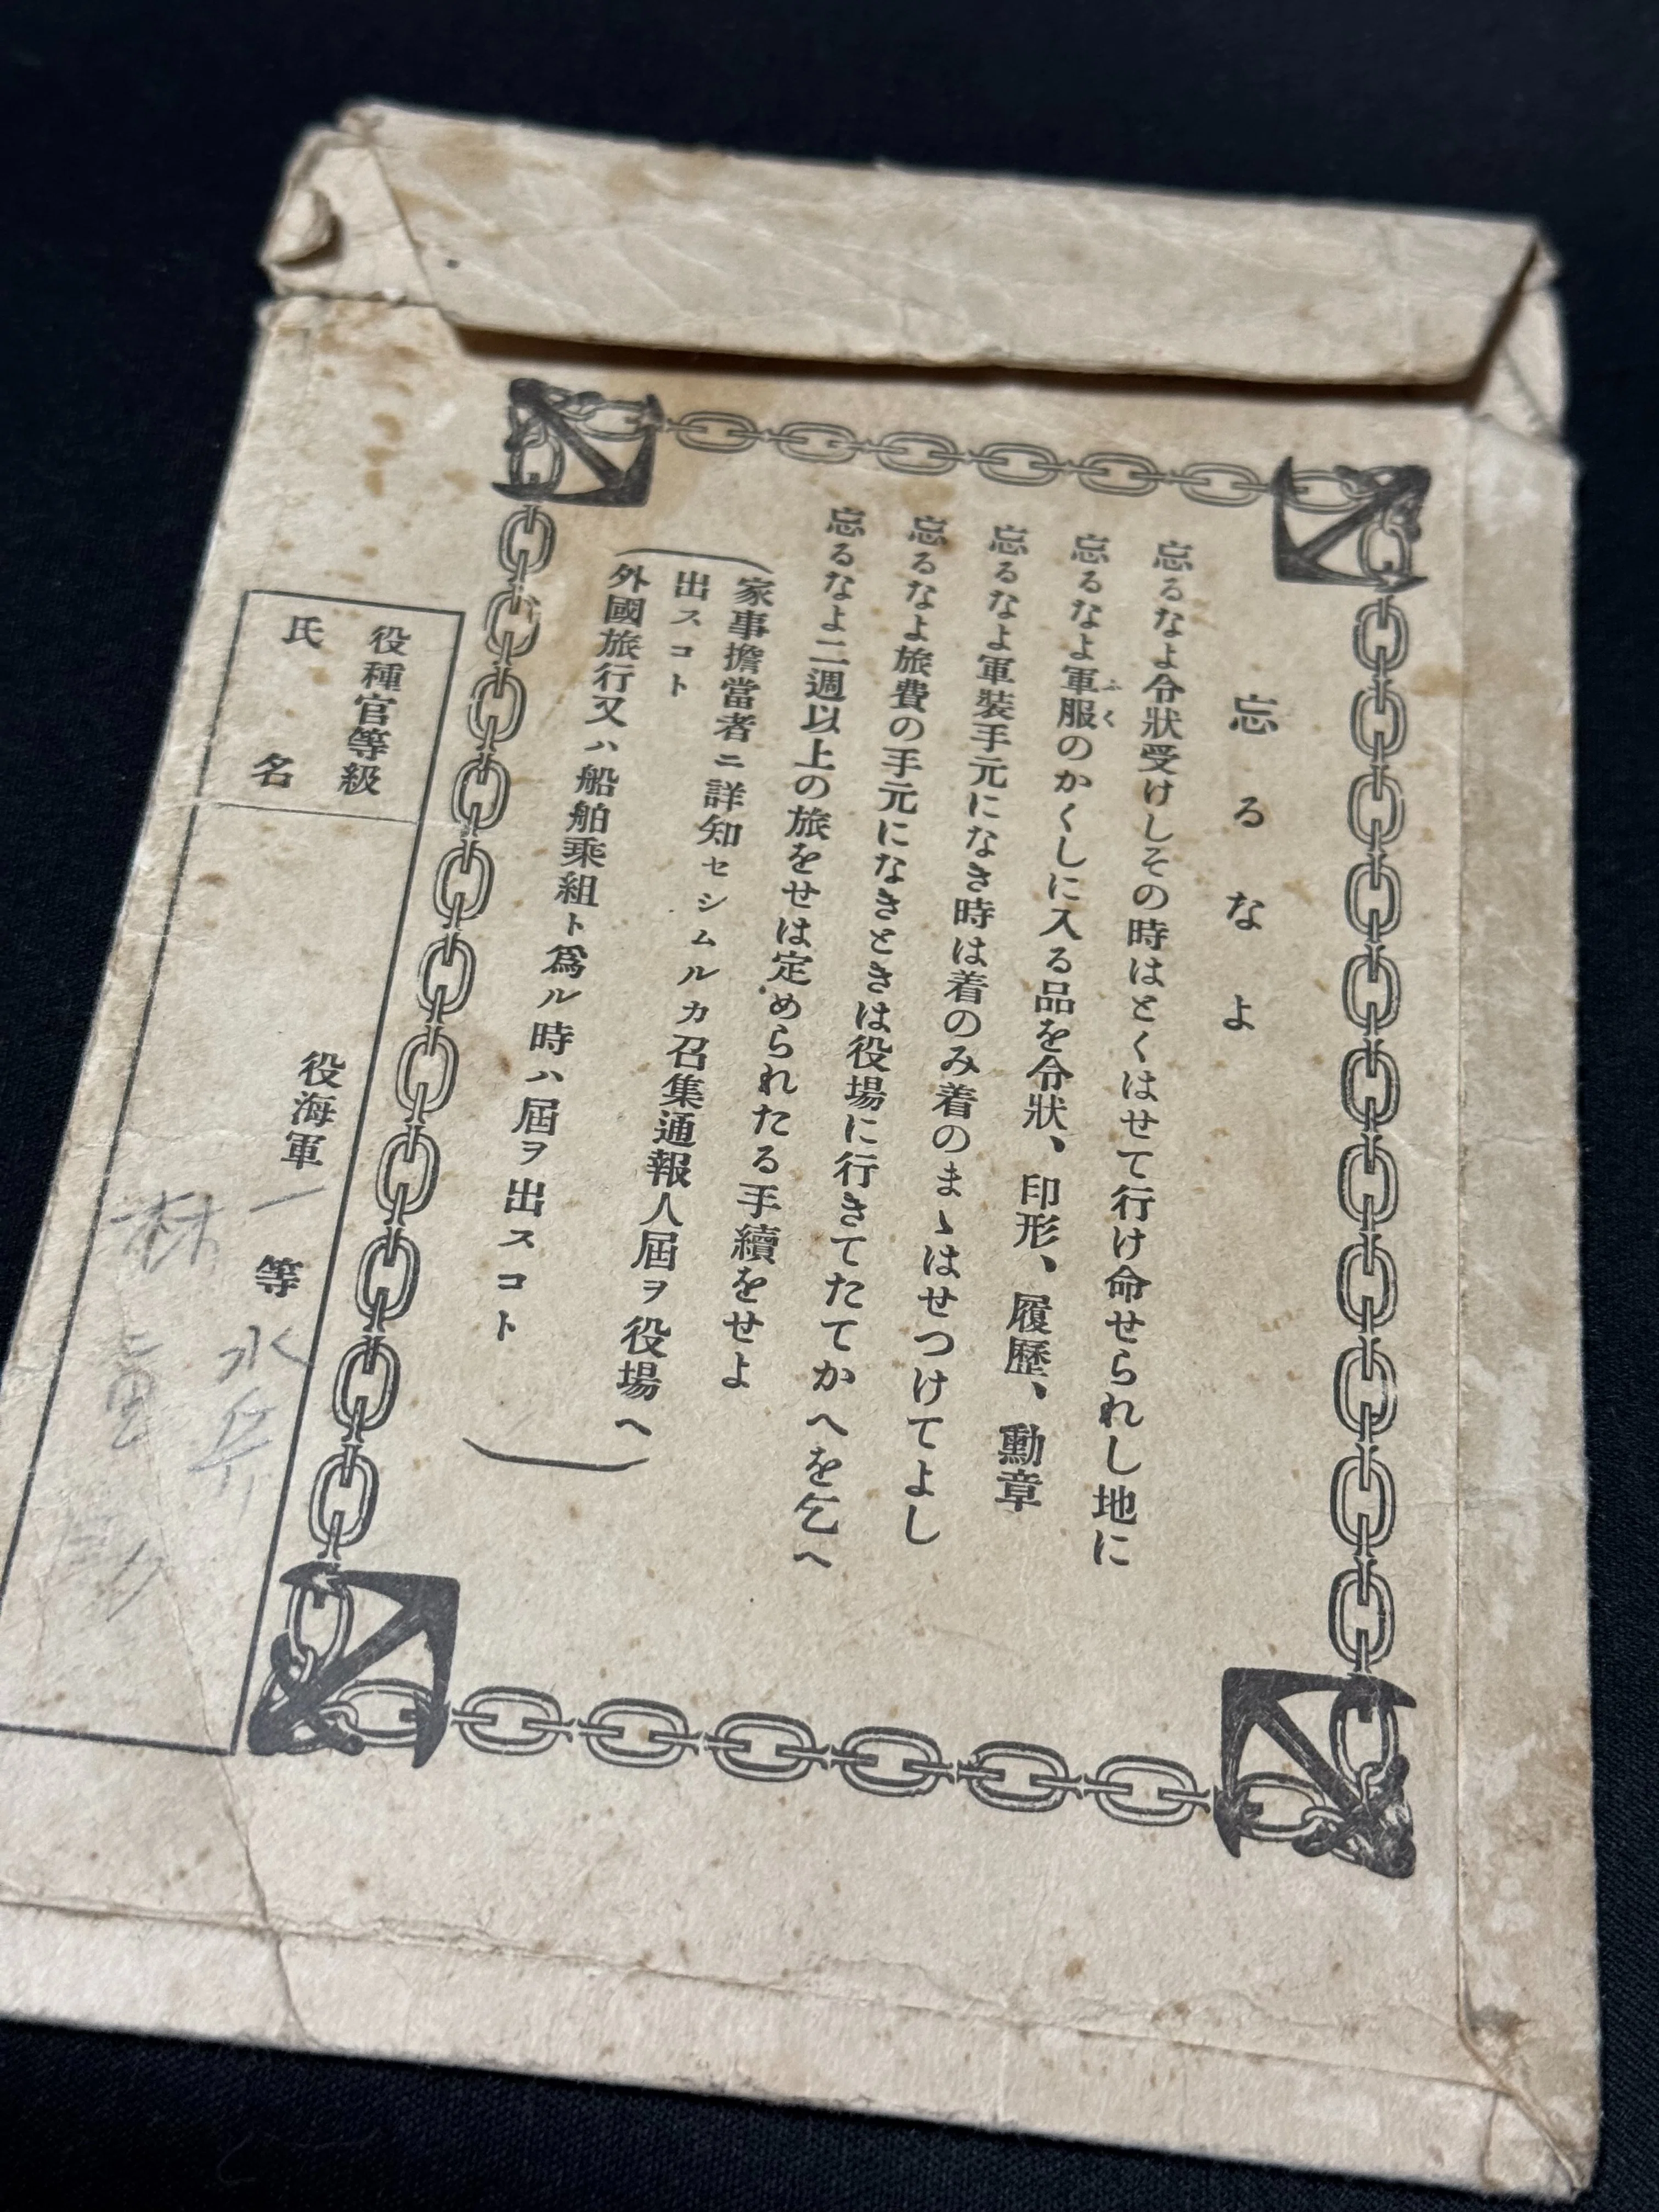 忘るなよ
忘るなよ令狀受けしその時はとくはせて行け命せられし地に
忘るなよ軍服のかくしに入る品を令狀、印形、履歷、勳章
ふく
忘るなよ軍裝手元になき時は着のみ着のまゝはせつけてよし
忘るなよ旅費の手元になきときは役場に行きてたてかへを乞へ
忘るなよ二週以上の旅をせは定められたる手續をせよ
(家事擔當者ニ詳知セシムルカ召集通報人屆ヲ役場へ
出スコト
外國旅行又ハ船舶乘組ト爲ル時ハ屆ヲ出スコト)
役種官等級
役海軍一等水兵
氏名
林